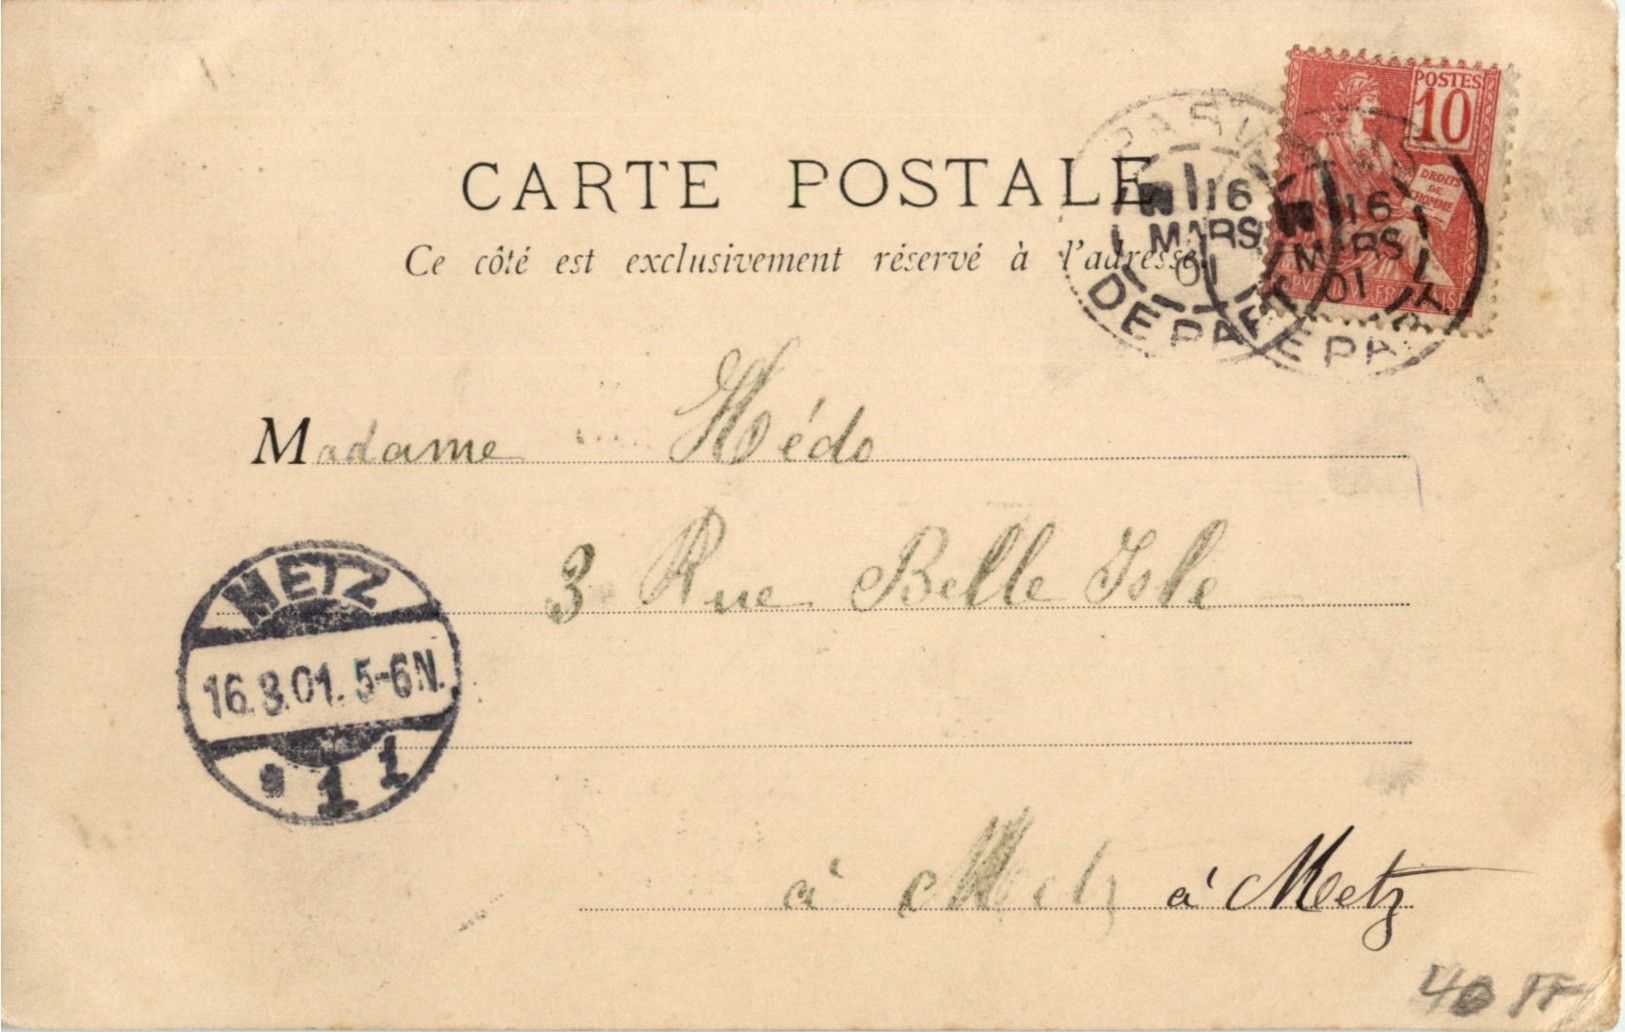 POSTES
10
DROITS
DE
L'HOMME
CARTE POSTALE
16
MARS
01
DEPART
16
MARS
01
DEPART
Ce côté est exclusivement réservé à l'adresse
Madame Hédo
3 Rue Belle Isle
METZ
16.3.01. 5-6N.
1 1
à Metz à Metz
40 FF